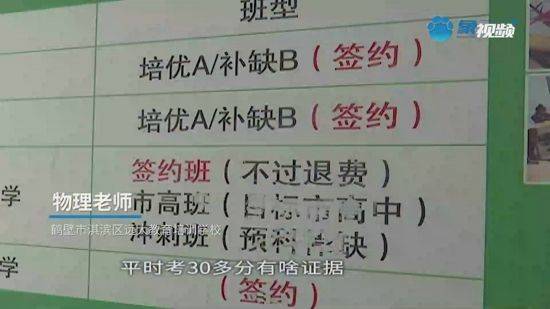 班型
象视频
培优A/补缺B（签约）
培优A/补缺B（签约）
签约班（不过退费）
学
市高班（目标市高中）
物理老师
冲刺班（预科
鹤壁市淇滨区远大教育培训学校
平时考30多分有啥证据
学
（签约）